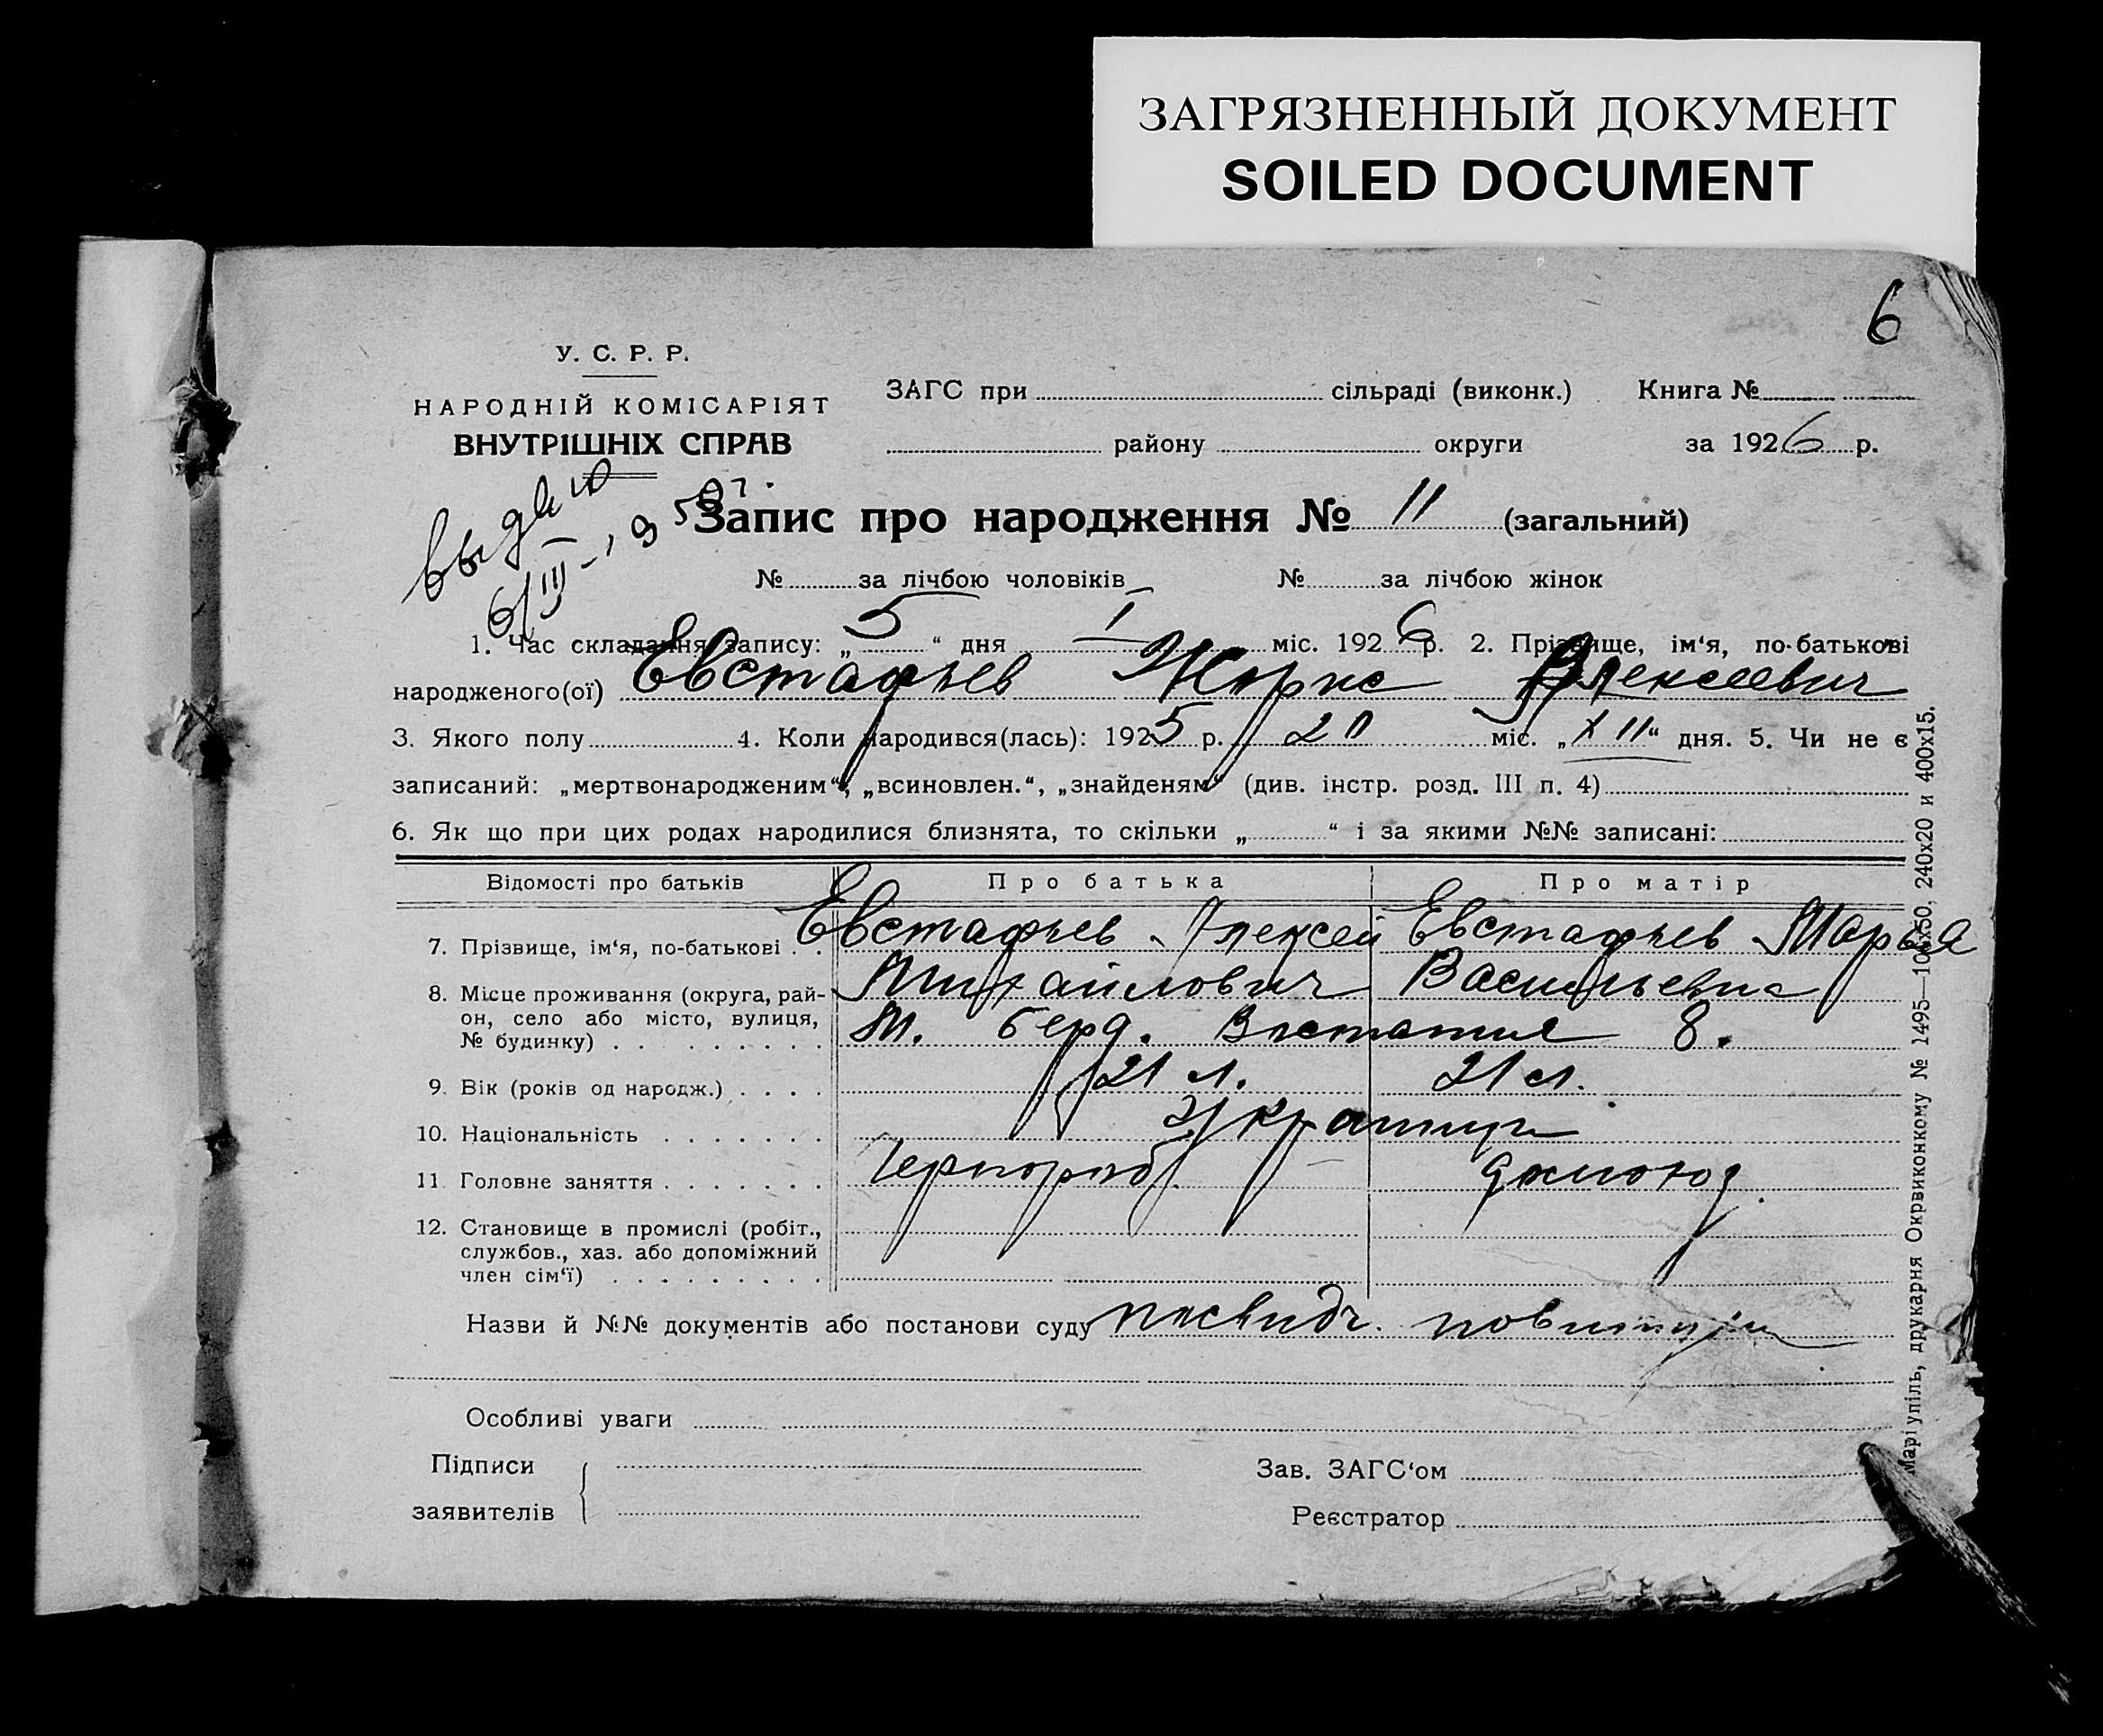 ЗАГРЯЗНЕННЫЙ ДОКУМЕНТ
SOILED DOCUMENT
6
У. С. Р. Р.
НАРОДНІЙ КОМІСАРІЯТ
ВНУТРІШНІХ СПРАВ
ЗАГС при сільраді (виконк.) Книга №
району округи за 1926 р.
Запис про народження № 11 (загальний)
№ за лічбою чоловіків № за лічбою жінок
1. Час складання запису: „5“ дня I міс. 1926 р. 2. Прізвище, ім‘я, по-батькові
народженого(ої) Евстафьев Жорис Алексеевич
3. Якого полу 4. Коли народився(лась): 1925 р. 20 міс. „XII“ дня. 5. Чи не є
записаний: „мертвонародженим“, „всиновлен.“, „знайденям“ (див. інстр. розд. III п. 4)
6. Як що при цих родах народилися близнята, то скільки „ “ і за якими №№ записані:
Відомості про батьків Про батька Про матір
7. Прізвище, ім‘я, по-батькові Евстафьев Алексей Евстафьев Марья
Михайлович Васильевна
8. Місце проживання (округа, рай-
он, село або місто, вулиця,
№ будинку) М. Берд. 8.
9. Вік (років од народж.) 21 л. 21 л.
10. Національність
11. Головне заняття Чернораб.
12. Становище в промислі (робіт.,
службов., хаз. або допоміжний
член сім‘ї)
Назви й №№ документів або постанови суду посвидч.
Особливі уваги
Підписи
заявителів
Зав. ЗАГС‘ом
Реєстратор
Маріупіль, друкарня Окрвиконкому № 1495—100х50, 240х20 и 400х15.